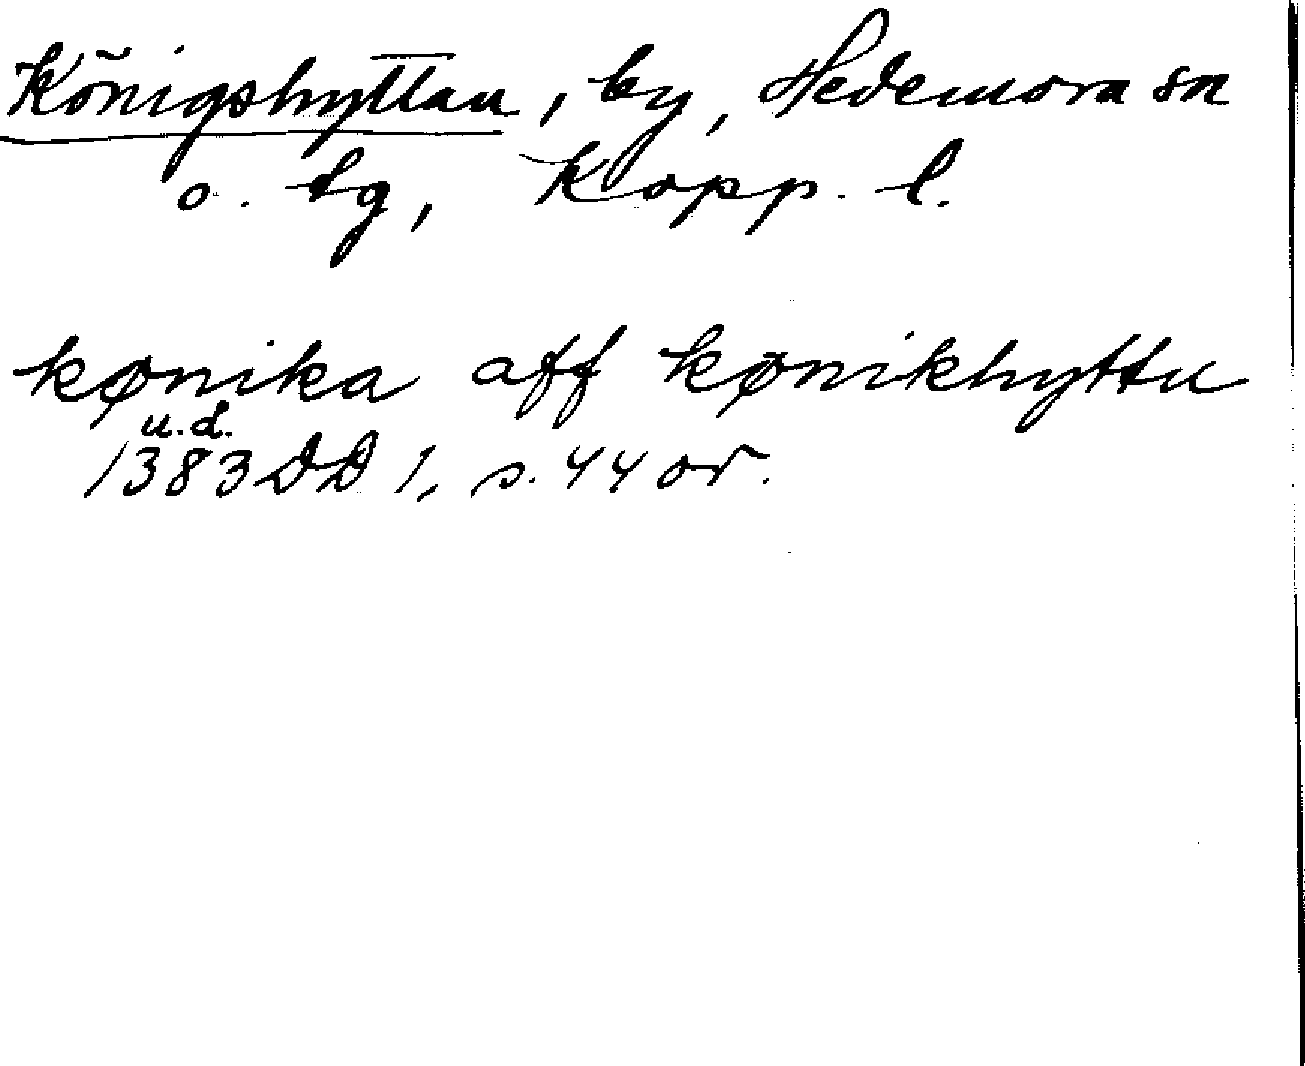 Königshyttan, by, Hedemora sn
o. tg, Kopp. l.
kønika aff kønikhyttu
u.d.
1383 DD 1, s. 44 or.